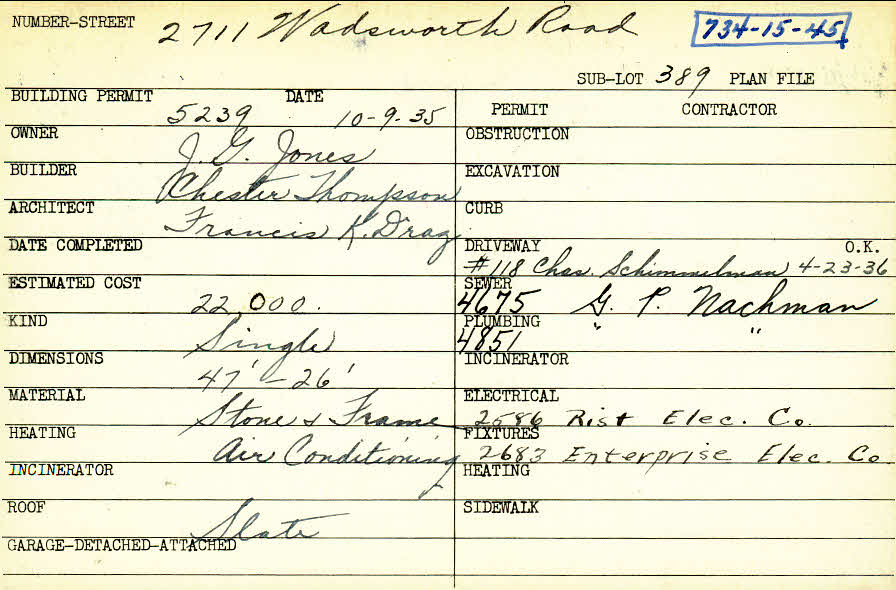 NUMBER-STREET 2711 Wadsworth Road 734-15-45
SUB-LOT 389 PLAN FILE
BUILDING PERMIT DATE
5239 10-9-35
OWNER
J. G. Jones
BUILDER
Chester Thompson
ARCHITECT
Francis K. Draz
DATE COMPLETED
ESTIMATED COST
22,000.
KIND
Single
DIMENSIONS
47' - 26'
MATERIAL
Stone & Frame
HEATING
Air Conditioning
INCINERATOR
ROOF
Slate
GARAGE-DETACHED-ATTACHED
PERMIT CONTRACTOR
OBSTRUCTION
EXCAVATION
CURB
DRIVEWAY O.K.
#118 Chas. Schimmelman 4-23-36
SEWER
4675 G. P. Nachman
PLUMBING
4851 " "
INCINERATOR
ELECTRICAL
2586 Rist Elec. Co.
FIXTURES
2683 Enterprise Elec. Co
HEATING
SIDEWALK